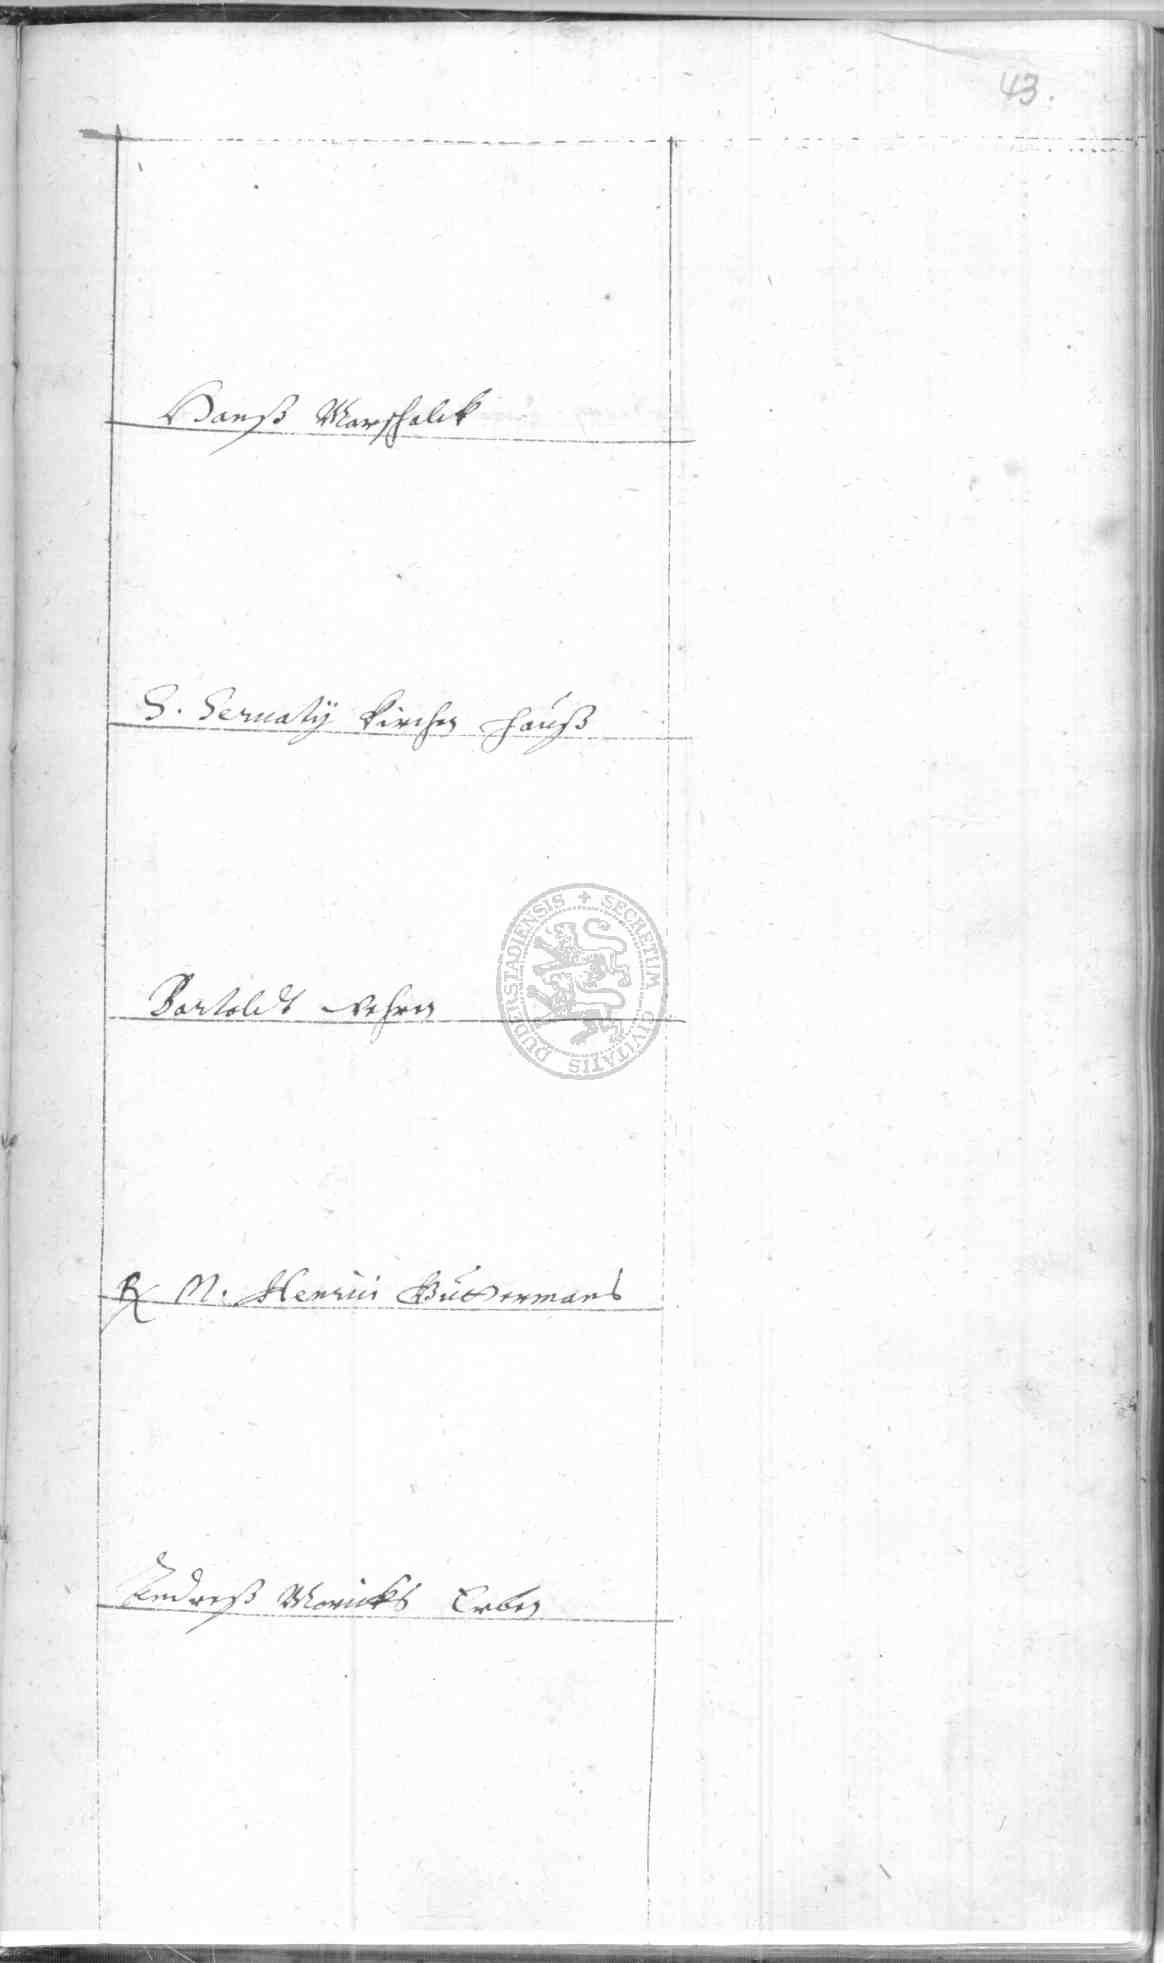 43.
Hanß Marschalck
S. Servatij Kirchen Hauß
DUDERSTADIENSIS + SECRETUM CIVITATIS
Bartoldt
M. Henrici
Andreß Moricks Erben